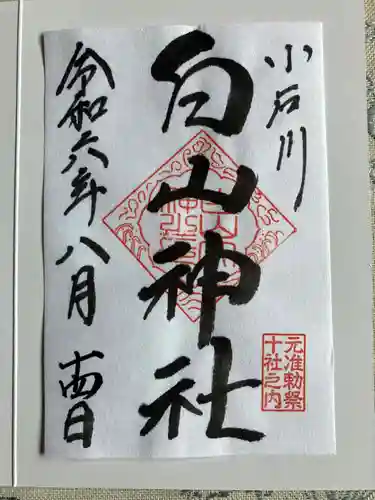 小石川
白山神社
元准勅祭
十社之内
令和六年八月十四日